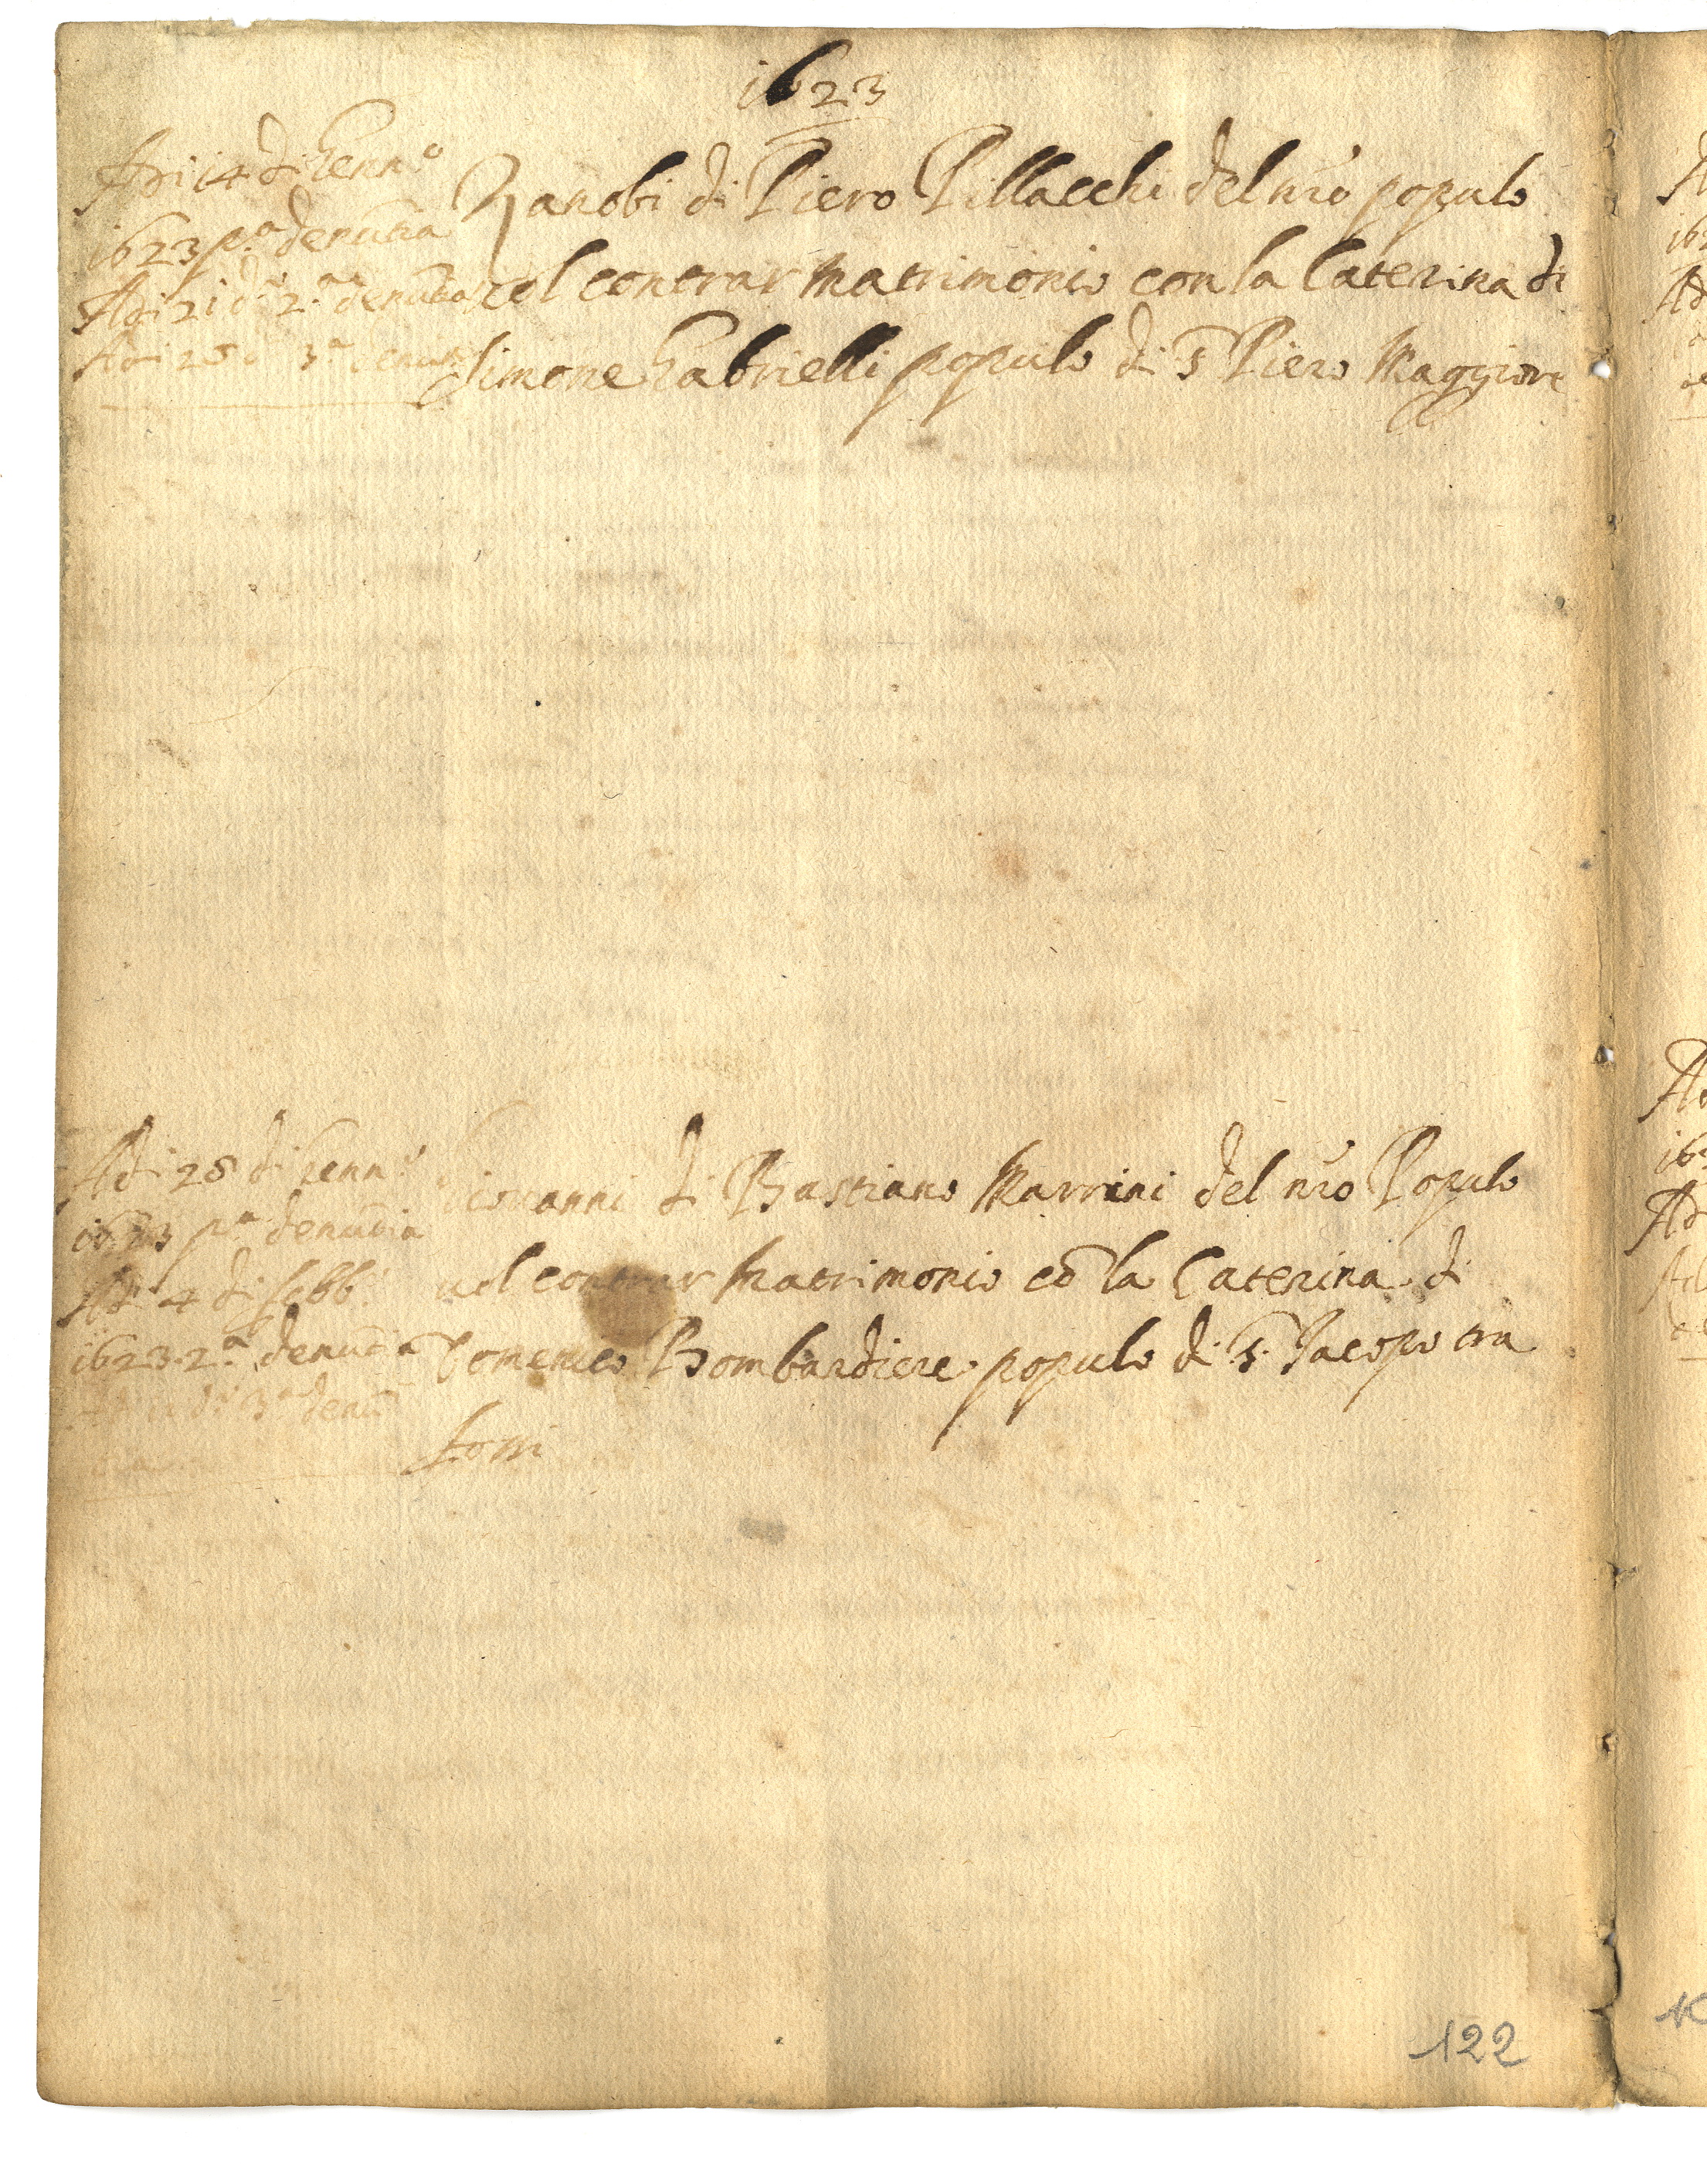 1623
Adi 14 di Genn.o
1623 p.a denūtia
Adi 21 d.o 2.a denūtia
Adi 28 d.o 3.a denūtia
Zanobi di Piero Pillacchi del nro populo
vol contrar matrimonio con la Caterina di
Simone Gabrielli populo di S Piero Maggiore
Adi 28 di Genn.o
1623 p.a denūtia
Adi 4 di febb.o
1623. 2.a denūtia
d.o 3.a denū
tia
Giovanni di Bastiano Marrini del nro Populo
vol contrar Matrimonio cō la Caterina di
Domenico Bombardiere populo di S. Jacopo tra
fossi
122